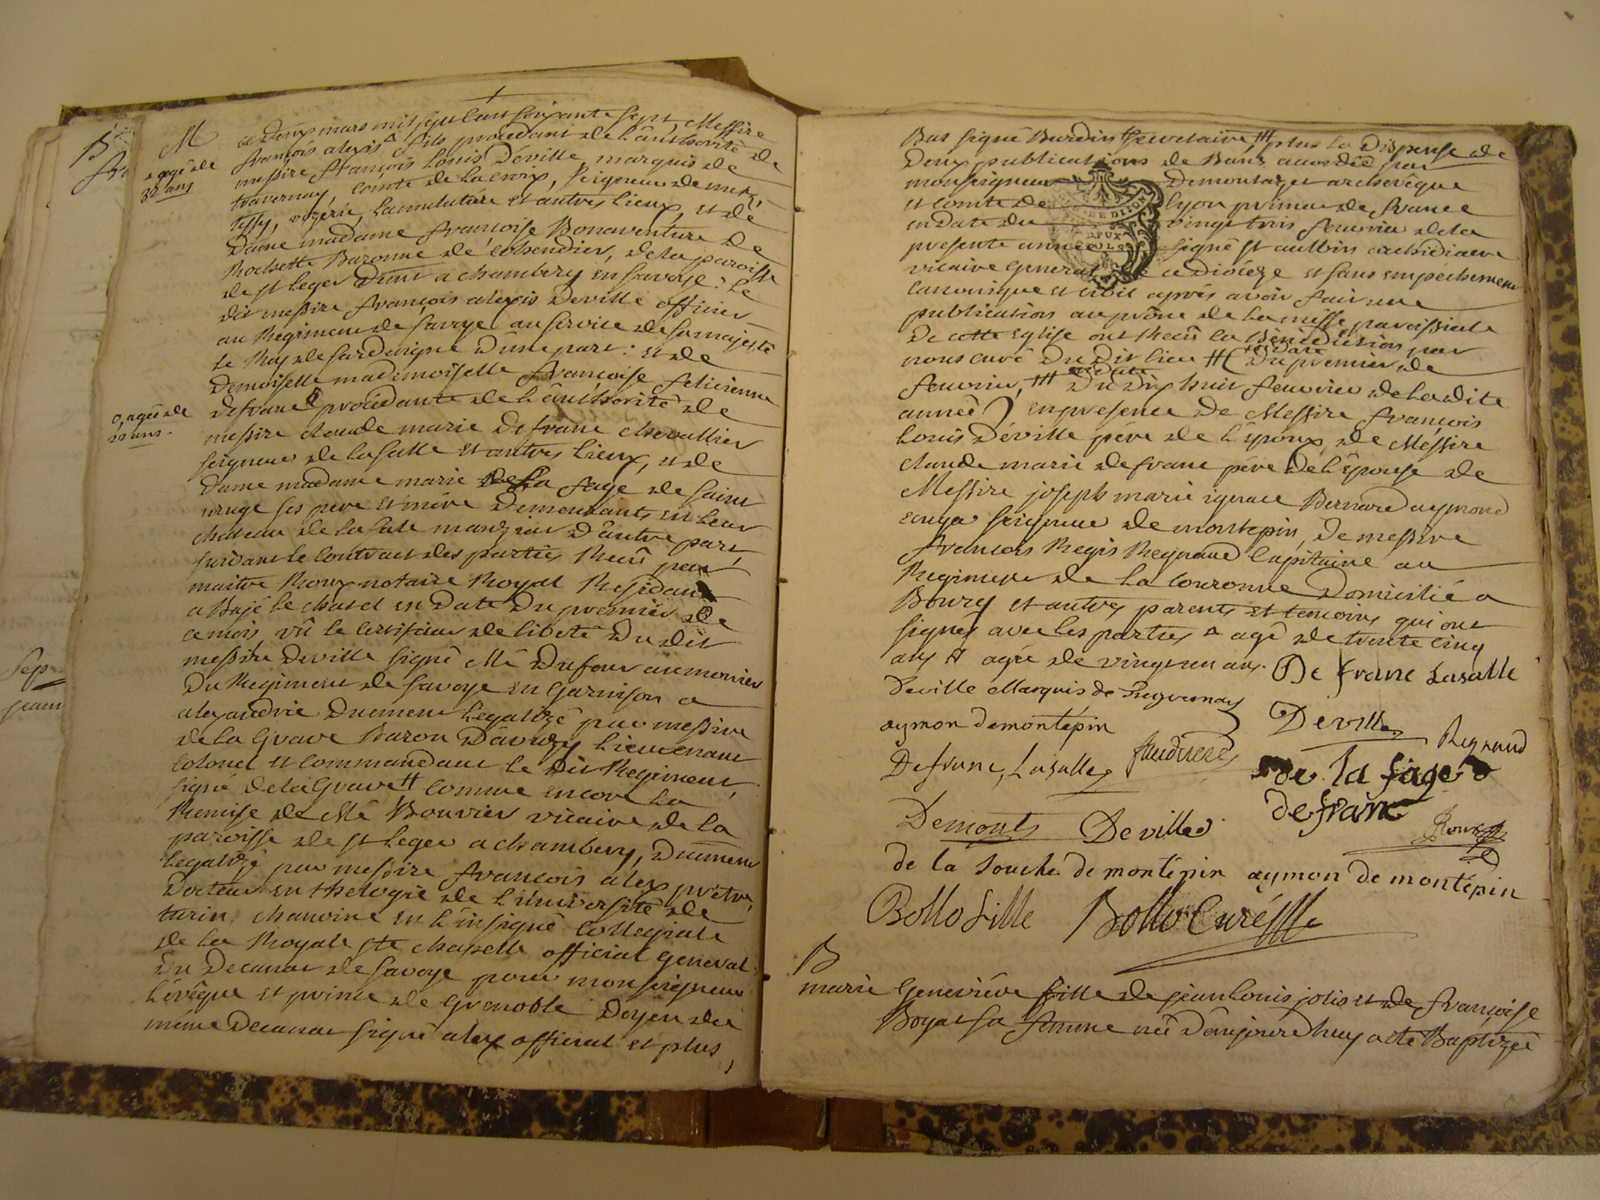 M
ce deux mars mil sept cent soixante sept Messire
françois alexis fils procedant de l'authorité de
messire françois Louis Déville marquis de
travernay, comte de la croix, seigneur de
et autres lieux, et de
Dame madame françoise Bonaventure De
Rochette Baronne de de la paroisse
de st leger a chambery en savoye: le
dit messire françois alexis Deville officier
au Regiment de savoye au service de sa majesté
le Roy de sardaigne d'une part: et de
Demoiselle mademoiselle françoise felicienne
defranc procedante de l'authorité de
messire claude marie defranc chevallier
seigneur de la salle et autres lieux, et de
dame madame marie de la fage de saint
huruge ses pere et mère demeurants en leur
chateau de la sale d'autre part,
suivant le contract des parties Recû par
maitre Roux notaire Royal Residant
a Bagé le chatel en date du premier de
ce mois vû le certificat de liberté du dit
messire Deville signé Mê Dufour aumonier
Du Regiment de savoye en garnison a
alexandrie duement legalizé par messire
de la Grave Baron Lieutenant
colonel et commandant le dit Regiment,
signé de la Grave # comme encore la
Remise de Mê Bouvier vicaire de la
paroisse de st leger a chambery, duement
legalizé par messire françois alex prêtre,
Docteur en theologie de l'université de
turin, chanoine en l'insigne collegiale
de la Royale ste chapelle official general
du Decanat de savoye pour monseigneur
L'évêque et prince de Grenoble Doyen du
même Decanat signé alex official et plus
x agé de
35 ans
o, agée de
21 ans.
Bas signé Burdin secretaire # plus la Dispense de
Deux publications de Bans accordée par
monseigneur De montazet archevêque
et comte de lyon primat de france
en date du vingt trois fevrier de la
presente année signé st aulbin archidiacre
vicaire general de ce dioceze et sans empechement
canonique et civil après avoir fait une
publication au prône de la messe paroissiale
De cette Eglise ont Recû la Bénédiction par
nous curé du dit lieu # en date du premier de
fevrier, ## en date du dix huit fevrier de la dite
année) en presence de Messire françois
Louis Déville père de l'époux, de Messire
claude marie defranc père de l'épouse de
Messire joseph marie ignace Bernard aymond
ecuyer seigneur de montepin, de messire
françois Regis Reynaud capitaine au
Regiment de la couronne domicilié a
Bourg et autres parents et temoins qui ont
signés avec les parties x agé de trente cinq
ans # agée de vingt un ans. De franc Lasalle
Deville Marquis de Travernay
aymon demontépin Deville Reynaud
Defranc, Lasalle de la fage
defranc
Demonts Deville Roux
de la Souche de montépin aymon de montépin
Bollo Sille Bollo Curé
B
marie Geneviéve fille de jean louis jolis et de françoise
Boyat sa femme née d'aujourd'huy a été Baptizée